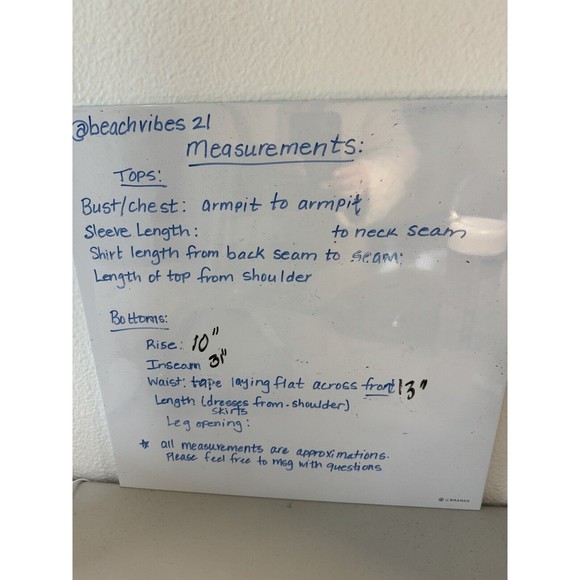 @beachvibes 21
Measurements:
TOPS:
Bust/chest: armpit to armpit
Sleeve Length: to neck seam
Shirt length from back seam to seam:
Length of top from shoulder
Bottoms:
Rise: 10"
Inseam 31"
Waist: tape laying flat across front 13"
Length (dresses from shoulder)
skirts
Leg opening:
* all measurements are approximations.
Please feel free to msg with questions
U BRANDS